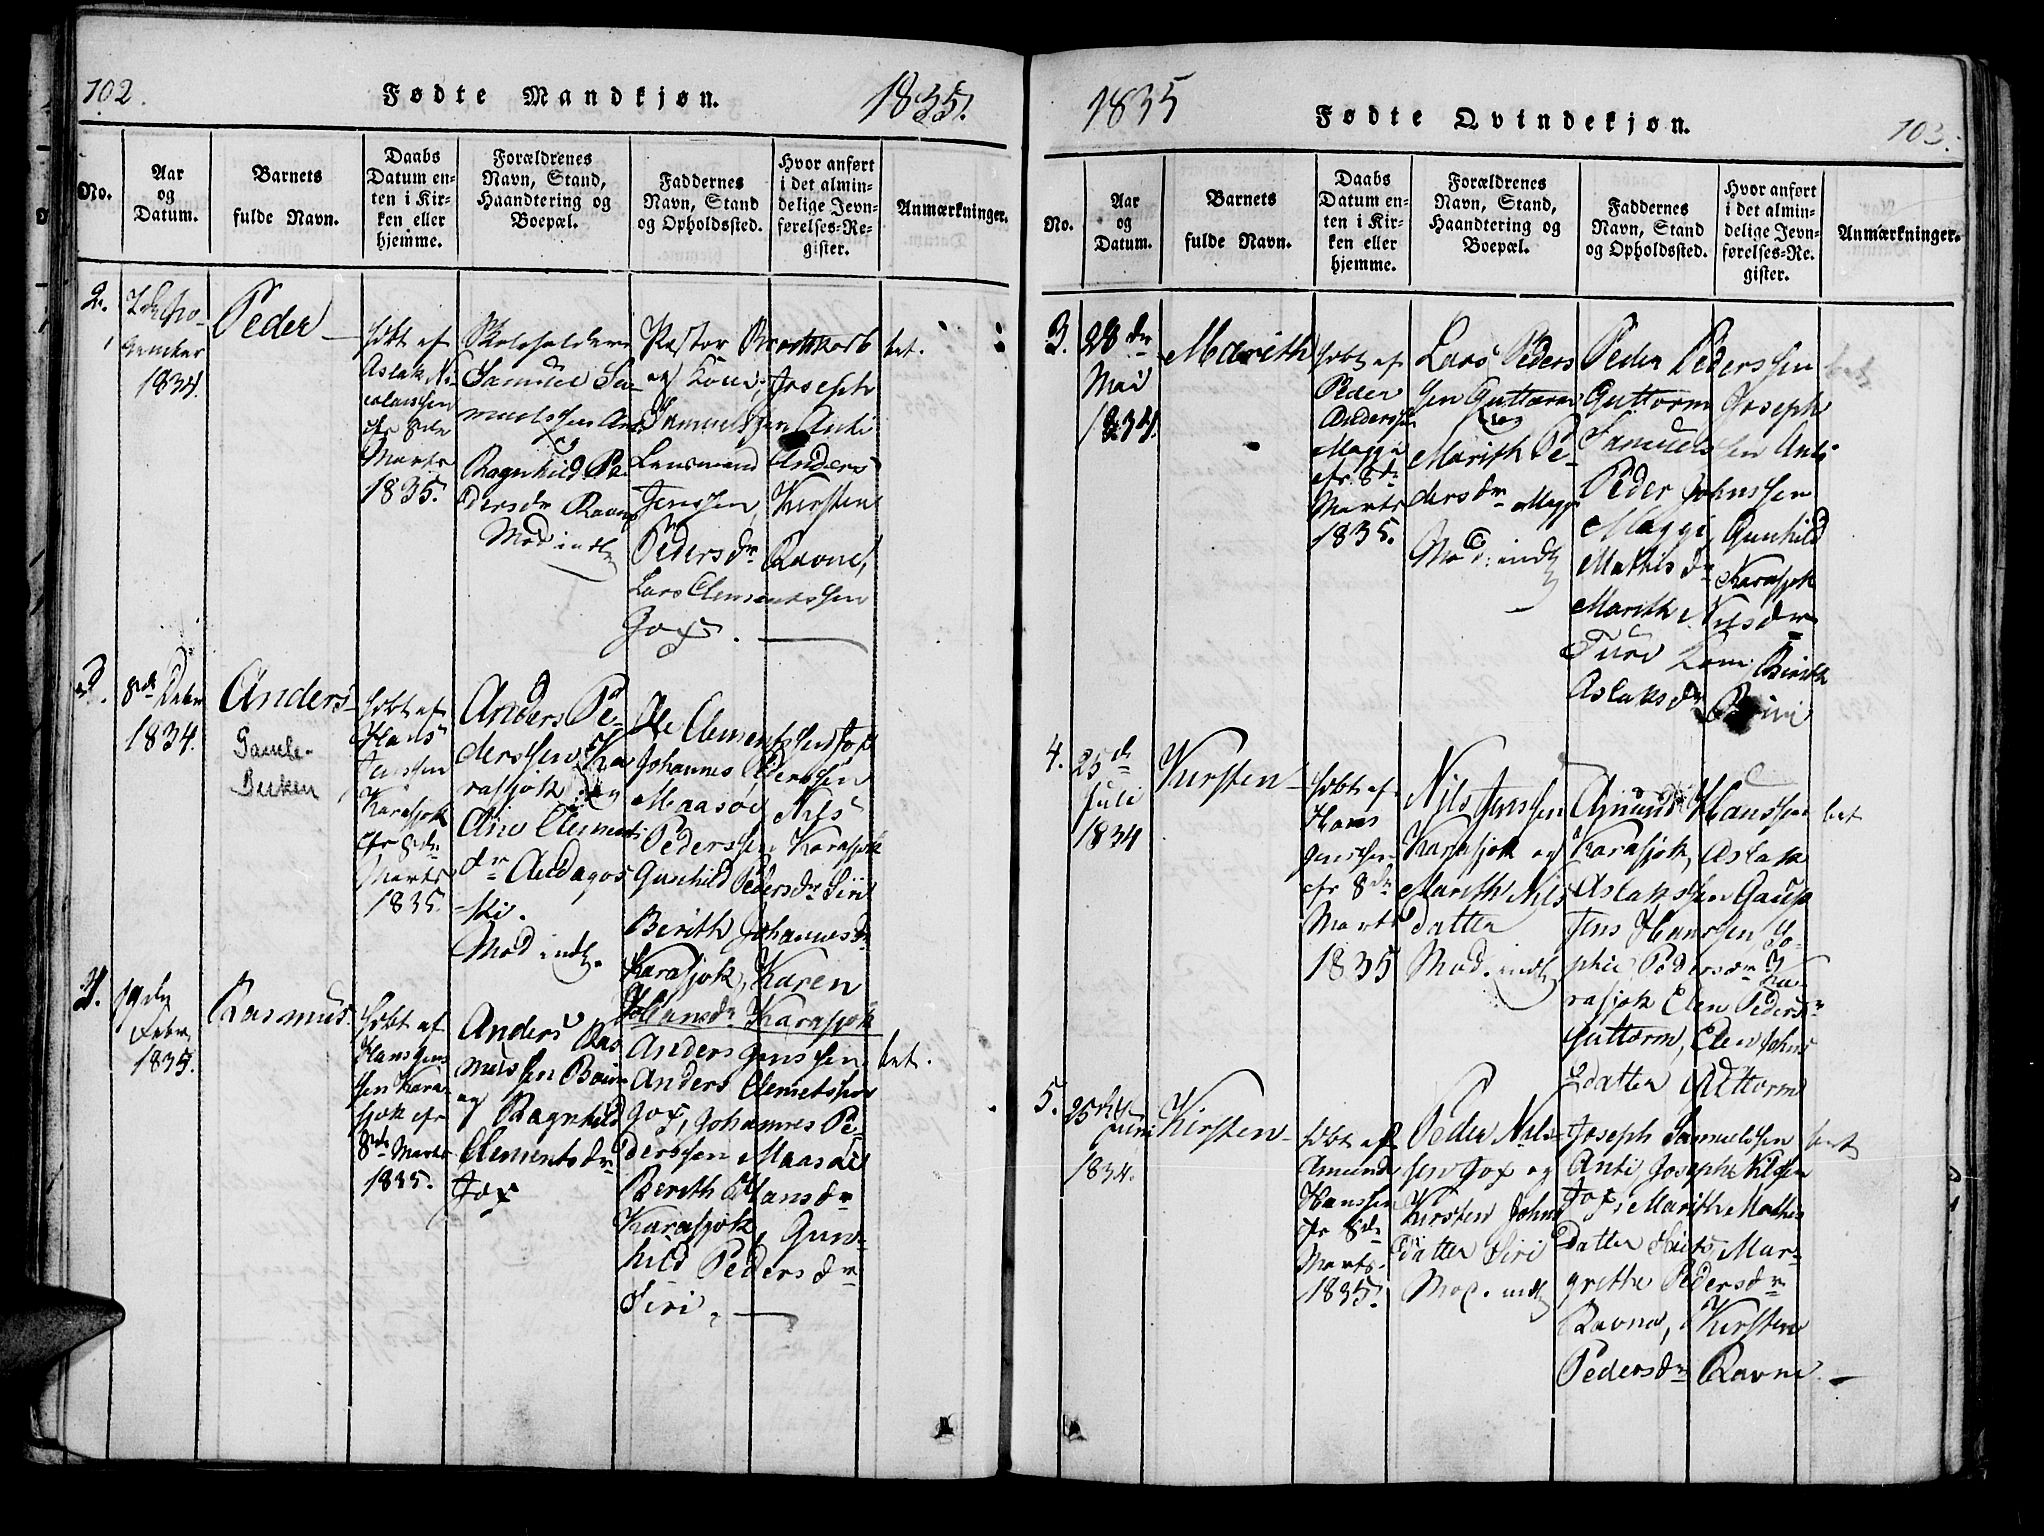 102.
Fødte Mandkjøn.
1835.
No.
Aar
og
Datum.
Barnets
fulde Navn.
Daabs
Datum en-
ten i Kir-
ken eller
hjemme.
Forældrenes
Navn, Stand,
Haandtering og
Boepæl.
Faddernes
Navn, Stand
og Opholdssted.
Hvor anført
i det almin-
delige Jevn-
førelses-Re-
gister.
Anmærkninger.
2.
1834.
Peder
døbt af
Aslak Ni-
colaissen
Marts
1835.
Skoleholder
Samuel Sa-
muelssen
Ragnhild Pe-
dersdr Ravna
Mod indl
Pastor
og Kone, Joseph
Samuelssen Anti
Lensmand Anders
Jenssen, Kirsten
Pedersdr Ravna,
Lars Clementssen
Jox.
bet.
3.
8de Debr
1834.
Anders
Gamle-
Beiken
døbt af
Hans
Jenssen
Karasjok
8de
Marts
1835.
Anders Pe-
derssen Ka
rasjok og
Ane Clements
dr Andagos
ski.
Mod indl.
Ole Clementssen Jox
Johannes Perssen
Maasøe Nils
Pederssen Karasjok
Gunhild Pedersdr Siri
Berith Johannesdr
Karasjok, Karen
Hansdr Karasjok
4.
19de
Febr
1835.
Rasmus
døbt af
Hans Jens
sen Kara-
sjok
8de Marts
1835.
Anders Ras
mussen
og Ragnhild
Clementsdr
Jox
Anders Jenssen
Anders Clemetssen
Jox, Johannes Pe-
derssen Maasøe
Berith Hansdr
Karasjok, Gun-
hild Pedersdr
Siri.
bet.
1835
Fødte Qvindekjøn.
103.
No.
Aar
og
Datum.
Barnets
fulde Navn.
Daabs
Datum en-
ten i Kir-
ken eller
hjemme.
Forældrenes
Navn, Stand,
Haandtering og
Boepæl.
Faddernes
Navn, Stand
og Opholdssted.
Hvor anført
i det almin-
delige Jevn-
førelses-Re-
gister.
Anmærkninger.
3.
28de
Mai
1834.
Marith
døbt af
Peder
Anderss
Maggi
8de
Marts
1835.
Lars Peders
sen Guttorm
og
Marith Pe-
dersdr Maggi
Mod. indl
Peder Pederssen
Guttorm Joseph
Samuelssen Anti
Peder Johnssen
Maggi, Gunhild
Mathisdr Karasjok
Marith Nilsdr
Turi Berith
Aslaksdr
bet
4.
25de
Juli
1834
Kirsten
døbt af
Hans
Jenssen
8de
Marts
1835
Nils Jenssen
Karasjok og
Marith Nils
datter
Mod. indl
Amund Hanssen
Karasjok, Aslak
Aslakssen Gaup
Jens Hanssen So-
phie Pedersdr Ka-
rasjok Elen Pedersdr
Guttorm, Elen Johns
datter Guttorm
bet
5.
25de Juni
1834.
Kirsten
døbt af
Amund
Hanssen
8de
Marts
1835.
Peder Nils-
sen Jox og
Kirsten Johns
datter Siri
Mod. indl
Joseph Samuelssen
Anti, Joseph Nilsen
Jox, Marith Mathis
datter Mar-
grethe Pedersdr
Ravna, Kirsten
Pedersdr Ravna.
bet